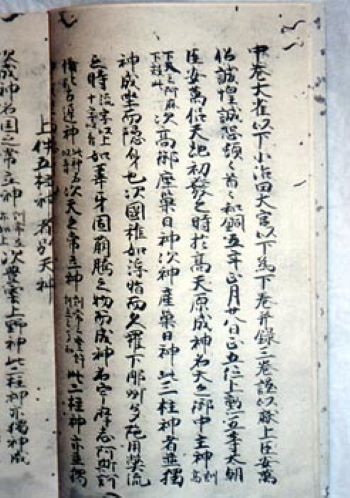 中卷大雀以下小治田大宮以下為下卷并錄三卷謹以獻上臣安萬
侶誠惶誠恐頓〻首〻和銅五年正月廿八日正五位上勲五等太朝
臣安萬侶天地初發之時於高天原成神名天之御中主神訓高
下天云阿麻下效此次高御産巢日神次神産巢日神此三柱神者並獨
神成坐而隠身也次國稚如浮脂而久羅下那州多陁用弊流
之時流字以上十字以音如葦牙因萠騰之物而成神名宇麻志阿斯訶
備比古遅神此神名以音次天之常立神此二柱神亦並獨
上件五柱神者別天神
次成神名国之常立神訓常立亦如上次豊雲上野神此二柱神亦獨神成